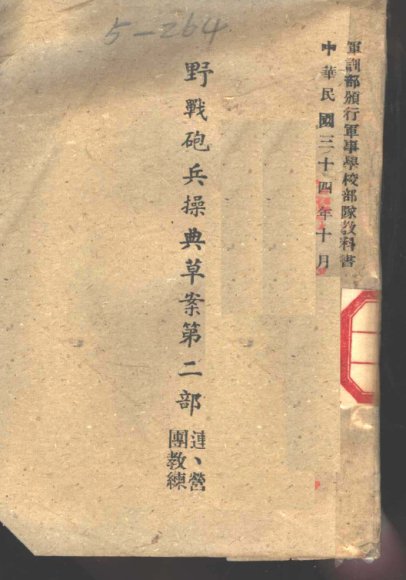 5-264
軍訓部頒行軍事學校部隊教科書
中華民國三十四年十月
野戰砲兵操典草案第二部
連、營
團教練